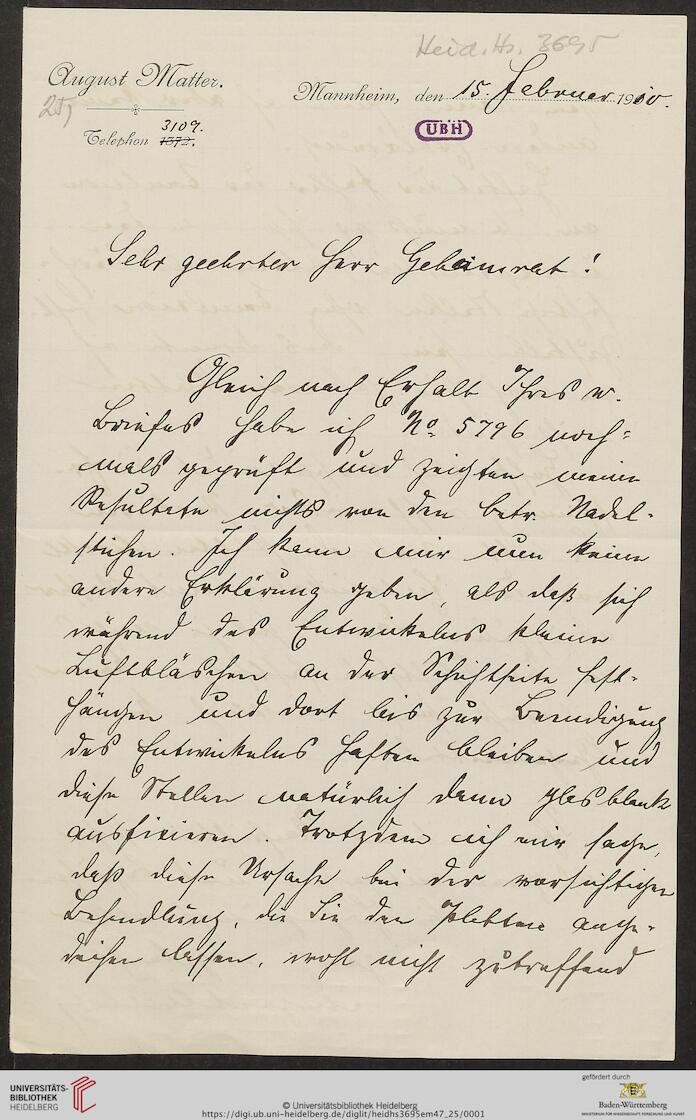 Heid. Hs. 3695
August Matter.
25,
Mannheim, den 15. Februar 1910.
Telephon 1572.
3109.
UBH
Sehr geehrter Herr Geheimrat!
Gleich nach Erhalt Ihres w.
Briefes habe ich No. 5796 noch=
mals geprüft und zeigten meine
Resultate nichts von den betr. Nadel-
stichen. Ich kann mir nun keine
andere Erklärung geben, als daß sich
während des Entwickelns kleine
Luftbläschen an der Schichtseite fest-
hängen und dort bis zur Beendigung
des Entwickelns haften bleiben und
diese Stellen natürlich dann glasblank
ausfixieren. Trotzdem ich mir sage,
daß diese Ursache bei der vorsichtigen
Behandlung, die Sie den Platten ange-
deihen lassen, wohl nicht zutreffend
UNIVERSITÄTS-
BIBLIOTHEK
HEIDELBERG
© Universitätsbibliothek Heidelberg
https://digi.ub.uni-heidelberg.de/diglit/heidhs3695em47_25/0001
gefördert durch
Baden-Württemberg
MINISTERIUM FÜR WISSENSCHAFT, FORSCHUNG UND KUNST